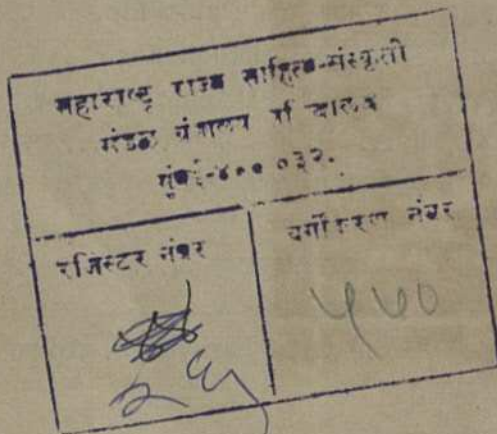 महाराष्ट्र राज्य साहित्य-संस्कृती
मंडळ मंत्रालय
मुंबई-४०० ०३२.
रजिस्टर नंबर
वर्गीकरण नंबर
५७०